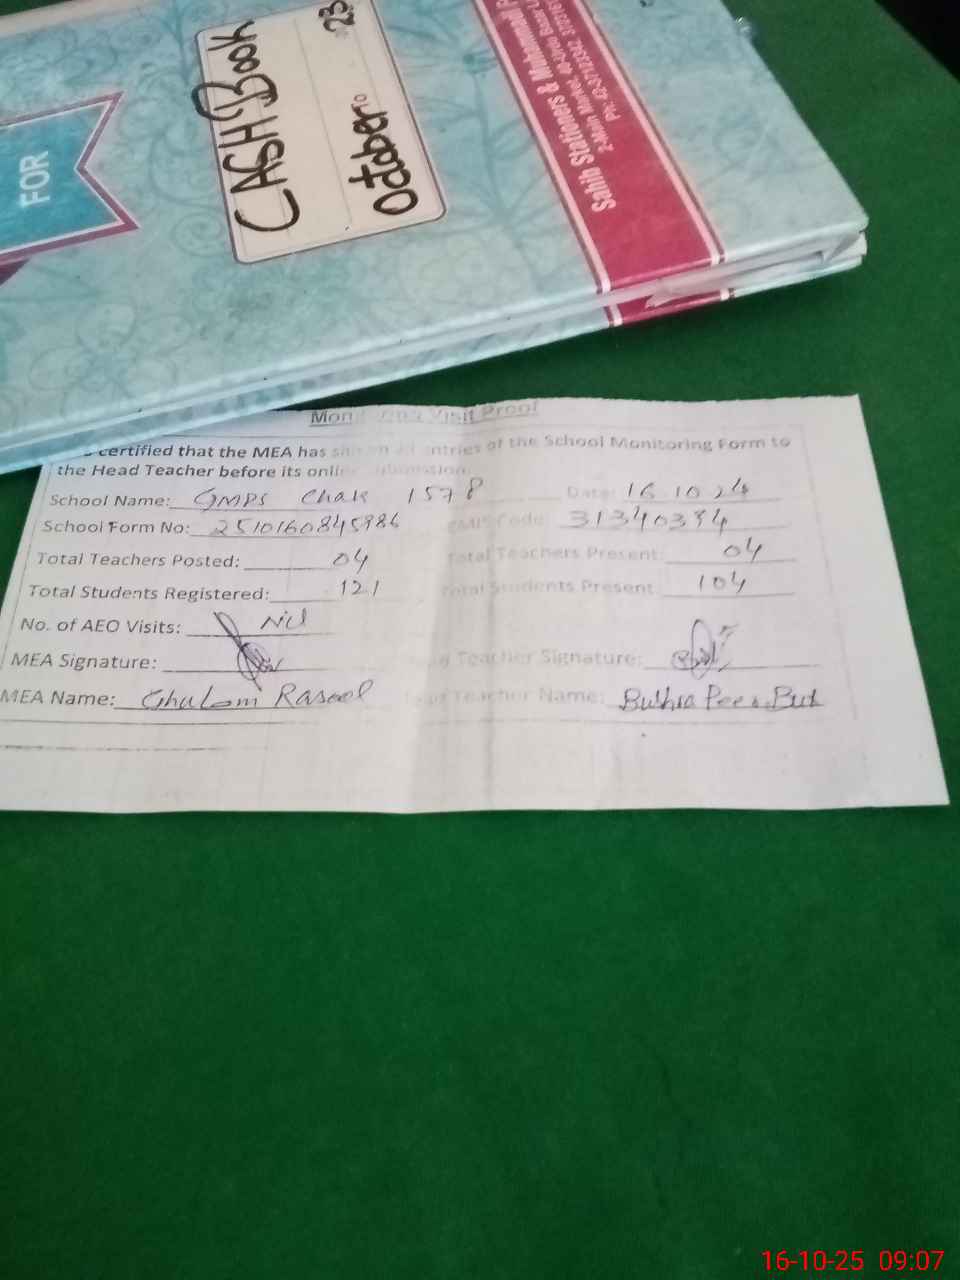 FOR
CASH Book
October 23
TO
Sahib Stationers & Muhammadi
2-Main Market, 40-Urdu Bazar
Ph: 42-37122342,
Visit Proof
certified that the MEA has entries of the School Monitoring Form to
the Head Teacher before its
School Name: GMPS Chak 157 P Date: 16.10.24
School Form No: 2510160845986 EMIS Code: 31340394
Total Teachers Posted: 04 Total Teachers Present: 04
Total Students Registered: 121 Total Students Present: 104
No. of AEO Visits: Nil
MEA Signature: Teacher Signature:
MEA Name: Ghulam Rasool Teacher Name: Bushra
16-10-25 09:07